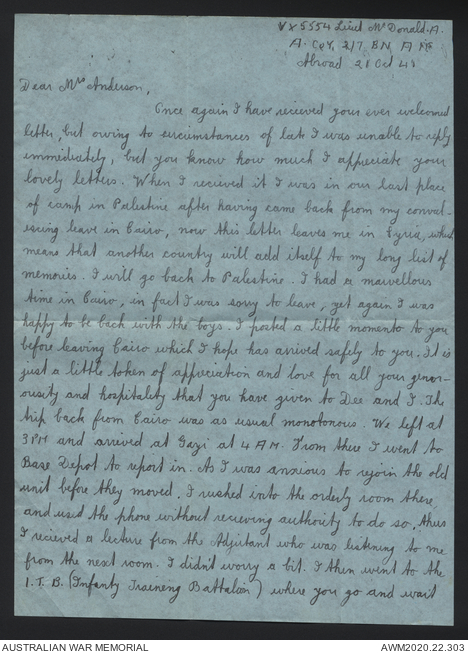 VX5554 Lieut McDonald. A.
A. Coy. 2/7 BN A I F
Abroad 21 Oct 41
Dear Mrs Anderson,
Once again I have recieved your ever welcomed
letter, but owing to surcumstances of late I was unable to reply
immediately, but you know how much I appreciate your
lovely letters. When I recieved it I was in our last place
of camp in Palestine after having came back from my conval-
escing leave in Cairo, now this letter leaves me in Syria, which
means that another country will add itself to my long list of
memories. I will go back to Palestine. I had a marvellous
time in Cairo, in fact I was sorry to leave, yet again I was
happy to be back with the boys. I posted a little momento to you
before leaving Cairo which I hope has arrived safely to you. It is
just a little token of appreciation and love for all your gener-
ousity and hospitality that you have given to Dee and I. The
trip back from Cairo was as usual monotonous. We left at
3PM and arrived at Gazi at 4 AM. From there I went to
Base Depot to report in. As I was anxious to rejoin the old
unit before they moved. I rushed into the orderly room there
and used the phone without recieving authority to do so, thus
I recieved a lecture from the Adjitant who was listening to me
from the next room. I didn't worry a bit. I then went to the
I. T. B. (Infanty Traineng Battalion) where you go and wait
AUSTRALIAN WAR MEMORIAL
AWM2020.22.303